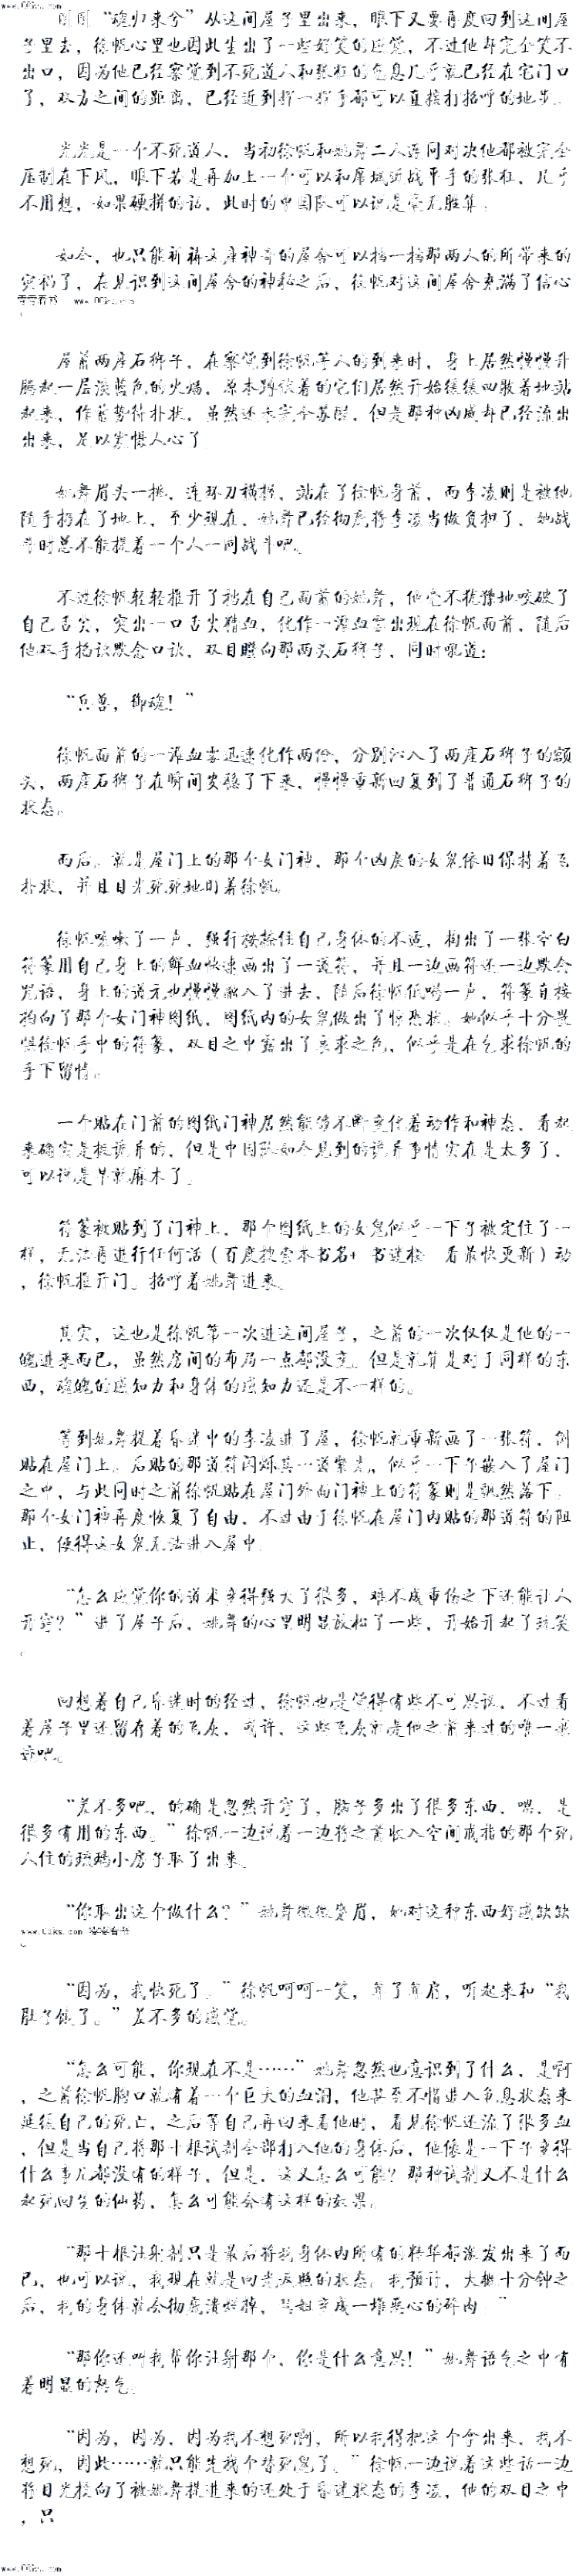 刚刚“魂归来兮”从这间屋子里出来，眼下又要再度回到这间屋
子里去，徐帆心里也因此生出了一些好笑的感觉，不过他却完全笑不
出口，因为他已经察觉到不死道人和张柱的气息几乎就已经在宅门口
了，双方之间的距离，已经近到挥一挥手都可以直接打招呼的地步。
光光是一个不死道人，当初徐帆和她舞二人连同对决他都被完全
压制在下风，眼下若是再加上一个可以和席城近战平手的张柱，几乎
不用想，如果硬拼的话，此时的中国队可以说是毫无胜算。
如今，也只能祈祷这座神奇的屋舍可以挡一挡那两人的所带来的
灾祸了，在见识到这间屋舍的神秘之后，徐帆对这间屋舍充满了信心
。
屋前两座石狮子，在察觉到徐帆等人的到来时，身上居然慢慢升
腾起一层淡蓝色的火焰，原本蹲伏着的它们居然开始缓缓四肢着地站
起来，作蓄势待扑状，虽然还未完全苏醒，但是那种凶威却已经流出
出来，足以震慑人心了。
舞眉头一挑，连环刀横握，站在了徐帆身前，而李凌则是被他
随手扔在了地上，至少现在，舞已经彻底将李凌当做负担了，她战
斗时总不能提着一个人一同战斗吧。
不过徐帆轻轻推开了挡在自己面前的舞，他毫不犹豫地咬破了
自己舌尖，突出一口舌尖精血，化作一滩血雾出现在徐帆面前，随后
他双手掐诀默念口诀，双目瞪向那两头石狮子，同时吼道：
“兵兽，御魂！”
徐帆面前的一滩血雾迅速化作两份，分别沁入了两座石狮子的额
头，两座石狮子在瞬间安稳了下来，慢慢重新回复到了普通石狮子的
状态。
而后。就是屋门上的那个女门神，那个凶戾的女鬼依旧保持着飞
扑状，并且目光死死地盯着徐帆。
徐帆咳嗽了一声，强行按捺住自己身体的不适，掏出了一张空白
符篆用自己身上的鲜血快速画出了一道符，并且一边画符还一边默念
咒语，身上的道元也慢慢融入了进去，随后徐帆低喝一声，符篆直接
拍向了那个女门神图纸，图纸内的女鬼做出了惊恐状。她似乎十分畏
惧徐帆手中的符篆，双目之中露出了哀求之色，似乎是在乞求徐帆的
手下留情。
一个贴在门前的图纸门神居然能够不断变化着动作和神态，看起
来确实是挺诡异的，但是中国队如今见到的诡异事情实在是太多了，
可以说是早就麻木了。
符篆被贴到了门神上，那个图纸上的女鬼似乎一下子被定住了一
样，无法再进行任何活（百度搜索本书名+ 书迷楼 看最快更新）动
，徐帆推开门。招呼着舞进来。
其实，这也是徐帆第一次进这间屋子，之前的一次仅仅是他的一
魄进来而已，虽然房间的布局一点都没变。但是就算是对于同样的东
西，魂魄的感知力和身体的感知力还是不一样的。
等到舞提着昏迷中的李凌进了屋，徐帆就重新画了一张符，倒
贴在屋门上。后贴的那道符闪烁其一道紫光，似乎一下子嵌入了屋门
之中，与此同时之前徐帆贴在屋门外面门神上的符篆则是飘然落下。
那个女门神再度恢复了自由，不过由于徐帆在屋门内贴的那道符的阻
止，使得这女鬼无法进入屋中。
“怎么感觉你的道术变得强大了很多，难不成重伤之下还能让人
开窍？”进了屋子后，舞的心里明显放松了一些，开始开起了玩笑
。
回想着自己昏迷时的经过，徐帆也是觉得有些不可思议，不过看
着屋子里还留存着的飞灰，或许，这些飞灰就是他之前来过的唯一痕
迹吧。
“差不多吧，的确是忽然开窍了，脑子多出了很多东西，嗯，是
很多有用的东西。”徐帆一边说着一边将之前收入空间戒指的那个死
人住的琉璃小房子取了出来。
“你取出这个做什么？”舞微微蹙眉，她对这种东西好感缺缺
。
“因为，我快死了。”徐帆呵呵一笑，耸了耸肩，听起来和“我
肚子饿了。”差不多的感觉。
“怎么可能，你现在不是……”舞忽然也意识到了什么，是啊
，之前徐帆胸口就有着一个巨大的血洞，他甚至不惜进入龟息状态来
延缓自己的死亡，之后等自己再回来看他时，看见徐帆还流了很多血
，但是当自己将那十根试剂全部打入他的身体后，他像是一下子变得
什么事儿都没有的样子，但是，这又怎么可能？那种试剂又不是什么
起死回生的仙药，怎么可能会有这样的效果。
“那十根注射剂只是最后将我身体内所有的精华都激发出来了而
已，也可以说，我现在就是回光返照的状态。我预计，大概十分钟之
后，我的身体就会彻底溃烂掉，马姐变成一堆恶心的碎肉。”
“那你还叫我帮你注射那个，你是什么意思！”舞语气之中有
着明显的怒气。
“因为，因为，因为我不想死啊，所以我得把这个拿出来，我不
想死，因此……就只能先找个替死鬼了。”徐帆一边说着这些话一边
将目光投向了被舞提进来的还处于昏迷状态的李凌，他的双目之中
，只